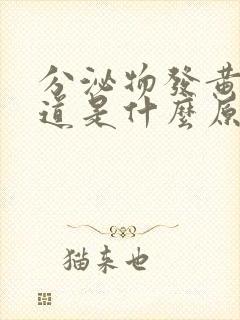 分泌物發黃
道是什麼原
猫来也